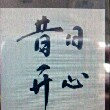 昔日
开心